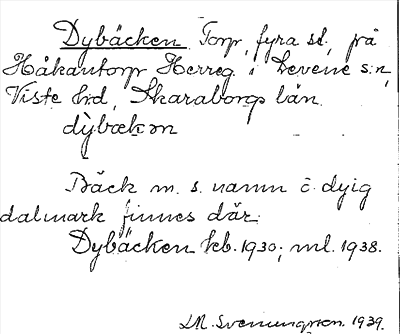 Dybäcken Torp, fyra st, på
Håkantorp Herreg. i Levene s:n,
Viste hd, Skaraborgs län.
dỳbækən
Bäck m. s. namn o. dyig
dalmark finnes där.
Dybäcken kb. 1930; ml. 1938.
1939.